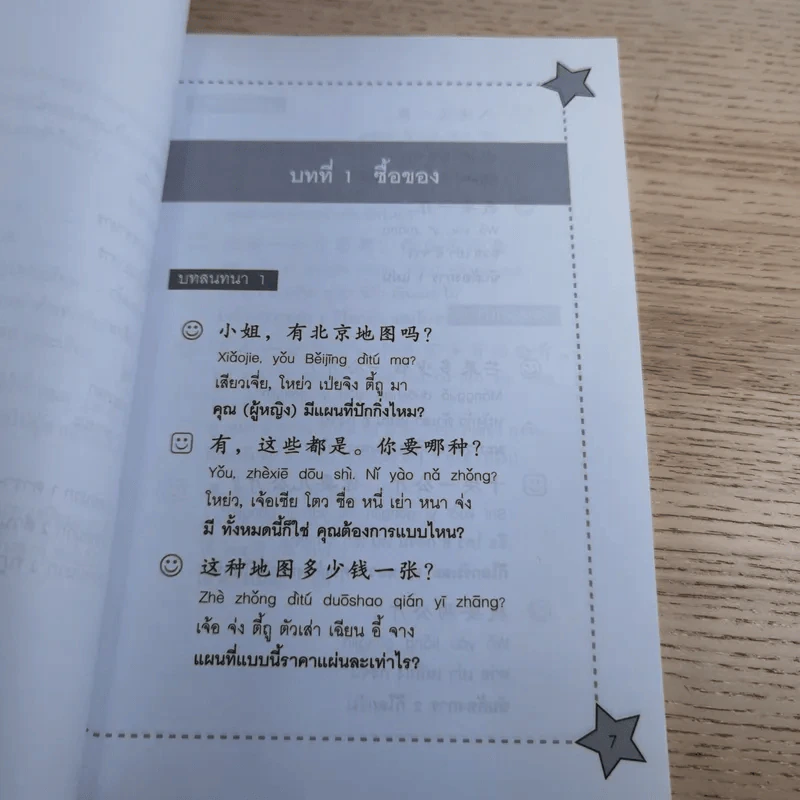 บทที่ 1 ซื้อของ
บทสนทนา 1
小姐，有北京地图吗？
Xiǎojie, yǒu Běijīng dìtú ma?
เสียวเจี่ย, โหย่ว เป่ยจิง ตี้ถู มา
คุณ (ผู้หญิง) มีแผนที่ปักกิ่งไหม?
有，这些都是。你要哪种？
Yǒu, zhèxiē dōu shì. Nǐ yào nǎ zhǒng?
โหย่ว, เจ้อเซีย โตว ซื่อ หนี่ เย่า หนา จ่ง
มี ทั้งหมดนี้ก็ใช่ คุณต้องการแบบไหน?
这种地图多少钱一张？
Zhè zhǒng dìtú duōshao qián yī zhāng?
เจ้อ จ่ง ตี้ถู ตัวเส่า เฉียน อี้ จาง
แผนที่แบบนี้ราคาแผ่นละเท่าไร?
7